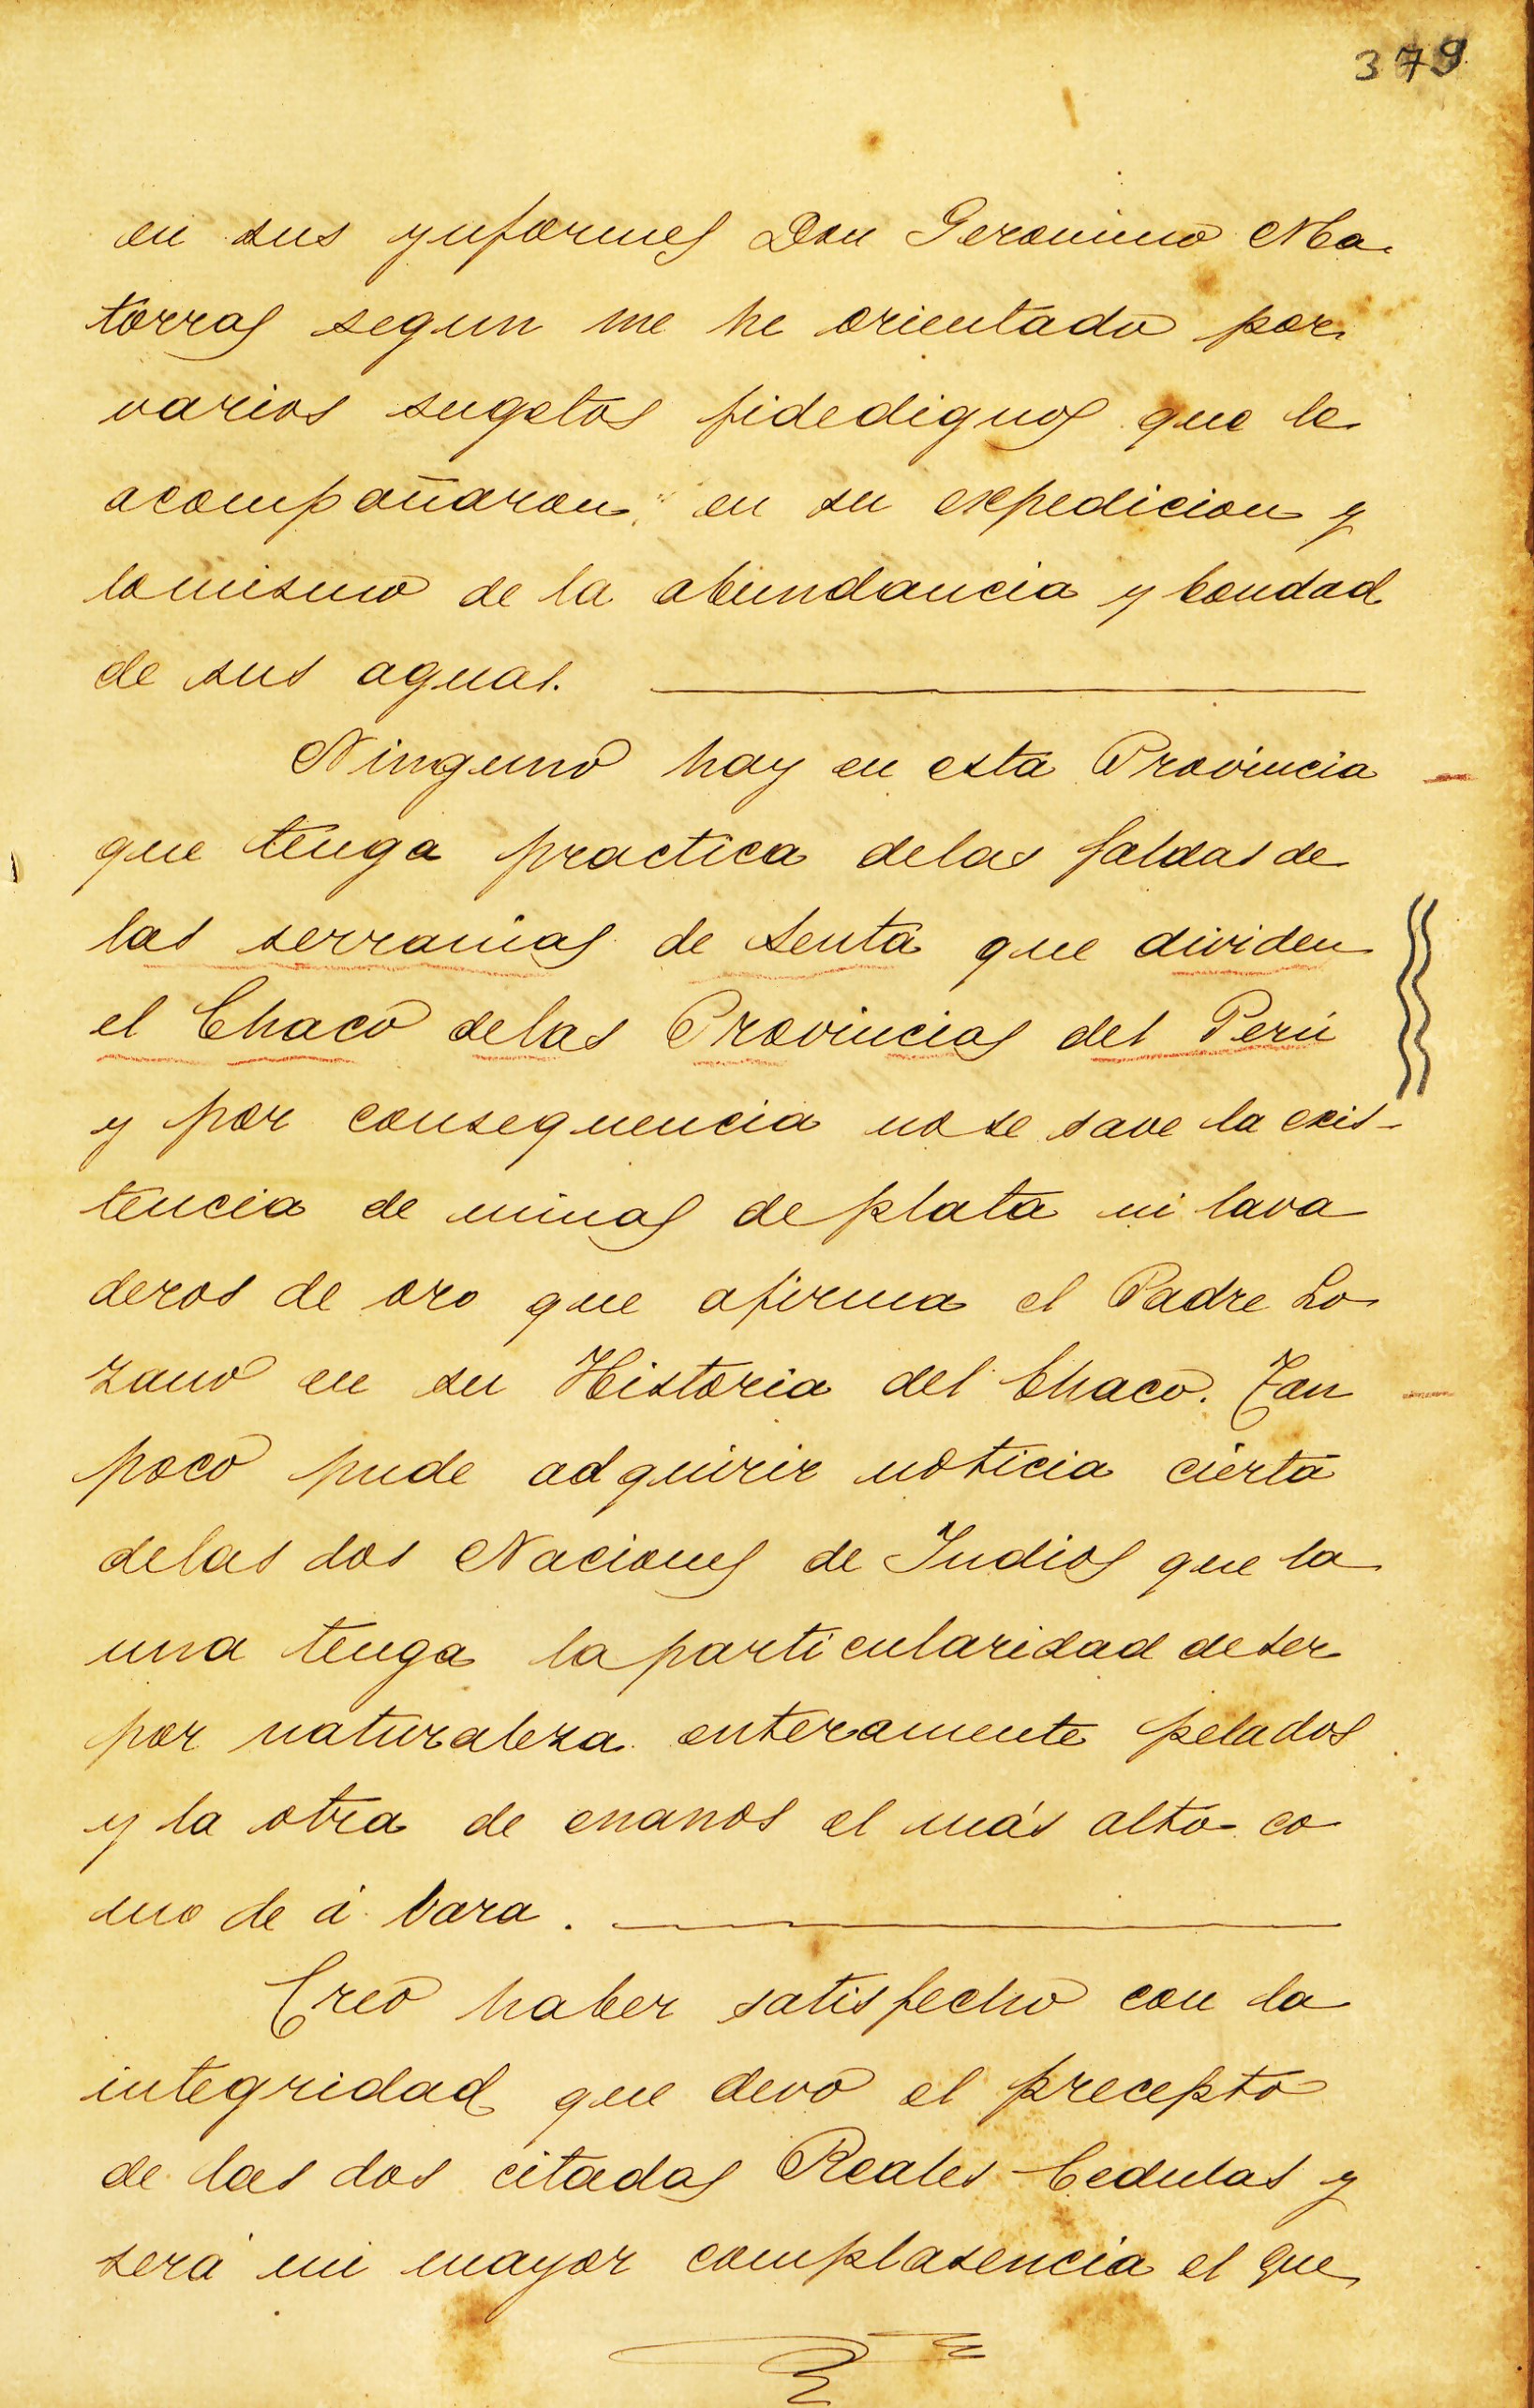 379
en sus ynformes Don Geronimo Ma-
torras segun me he orientado por
varios sugetos fidedignos que le
acompañaron en su expedicion y
lo mismo de la abundancia y bondad
de sus aguas.
Ninguno hay en esta Provincia
que tenga practica delas faldas de
las serranias de Senta que dividen
el Chaco delas Provincias del Perú
y por consequencia no se save la exis-
tencia de minas de plata ni lava
deros de oro que afirma el Padre Lo
zano en su Historia del Chaco. Tan
poco pude adquirir noticia cierta
delas dos Naciones de Indios que la
una tenga la particularidad de ser
por naturaleza enteramente pelados
y la otra de enanos el más alto co
mo de á vara.
Creo haber satisfecho con la
integridad que devo el precepto
de las dos citadas Reales Cedulas y
será mi mayor complasencia el que